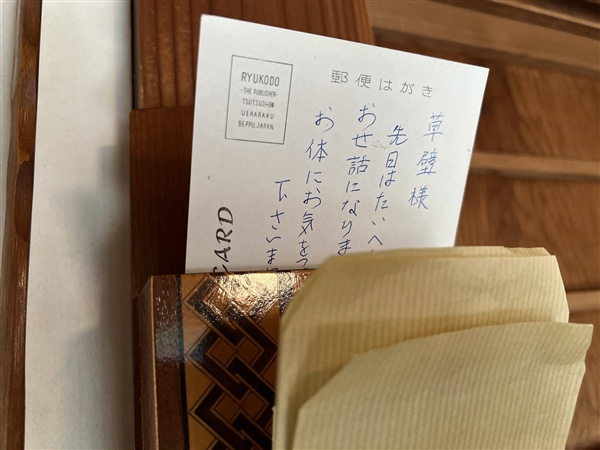 RYUKODO
-THE PUBLISHER-
TSUTSUZI-EN
UEHARAKU
BEPPU, JAPAN
郵便はがき
草壁様
先日はたいへ
おせ話になりま
お体にお気をつ
下さいま
CARD